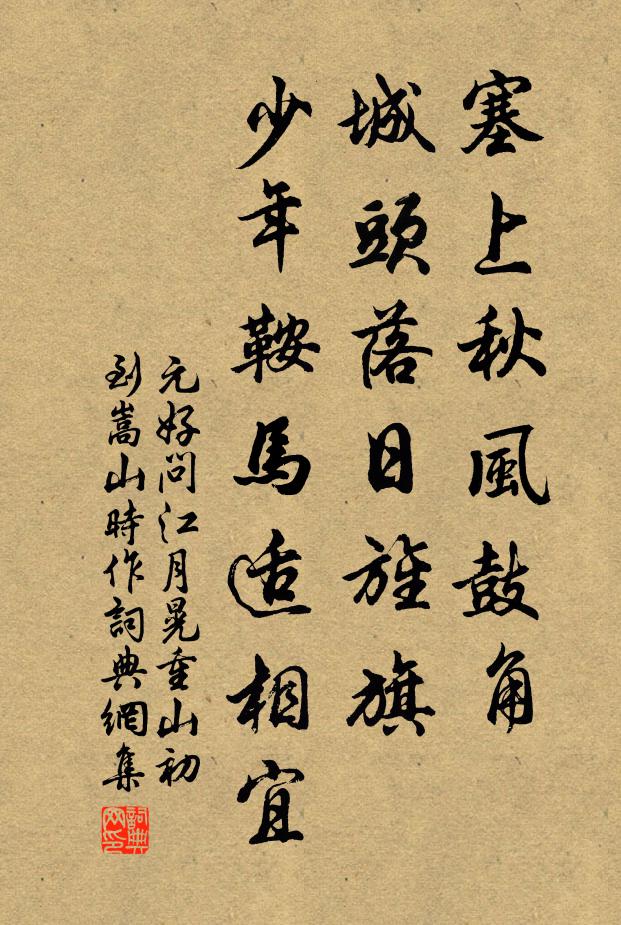 塞上秋風鼓角
城頭落日旌旗
少年鞍馬适相宜
元好問江月晃重山初
到嵩山時作詞典網集
詞典网印